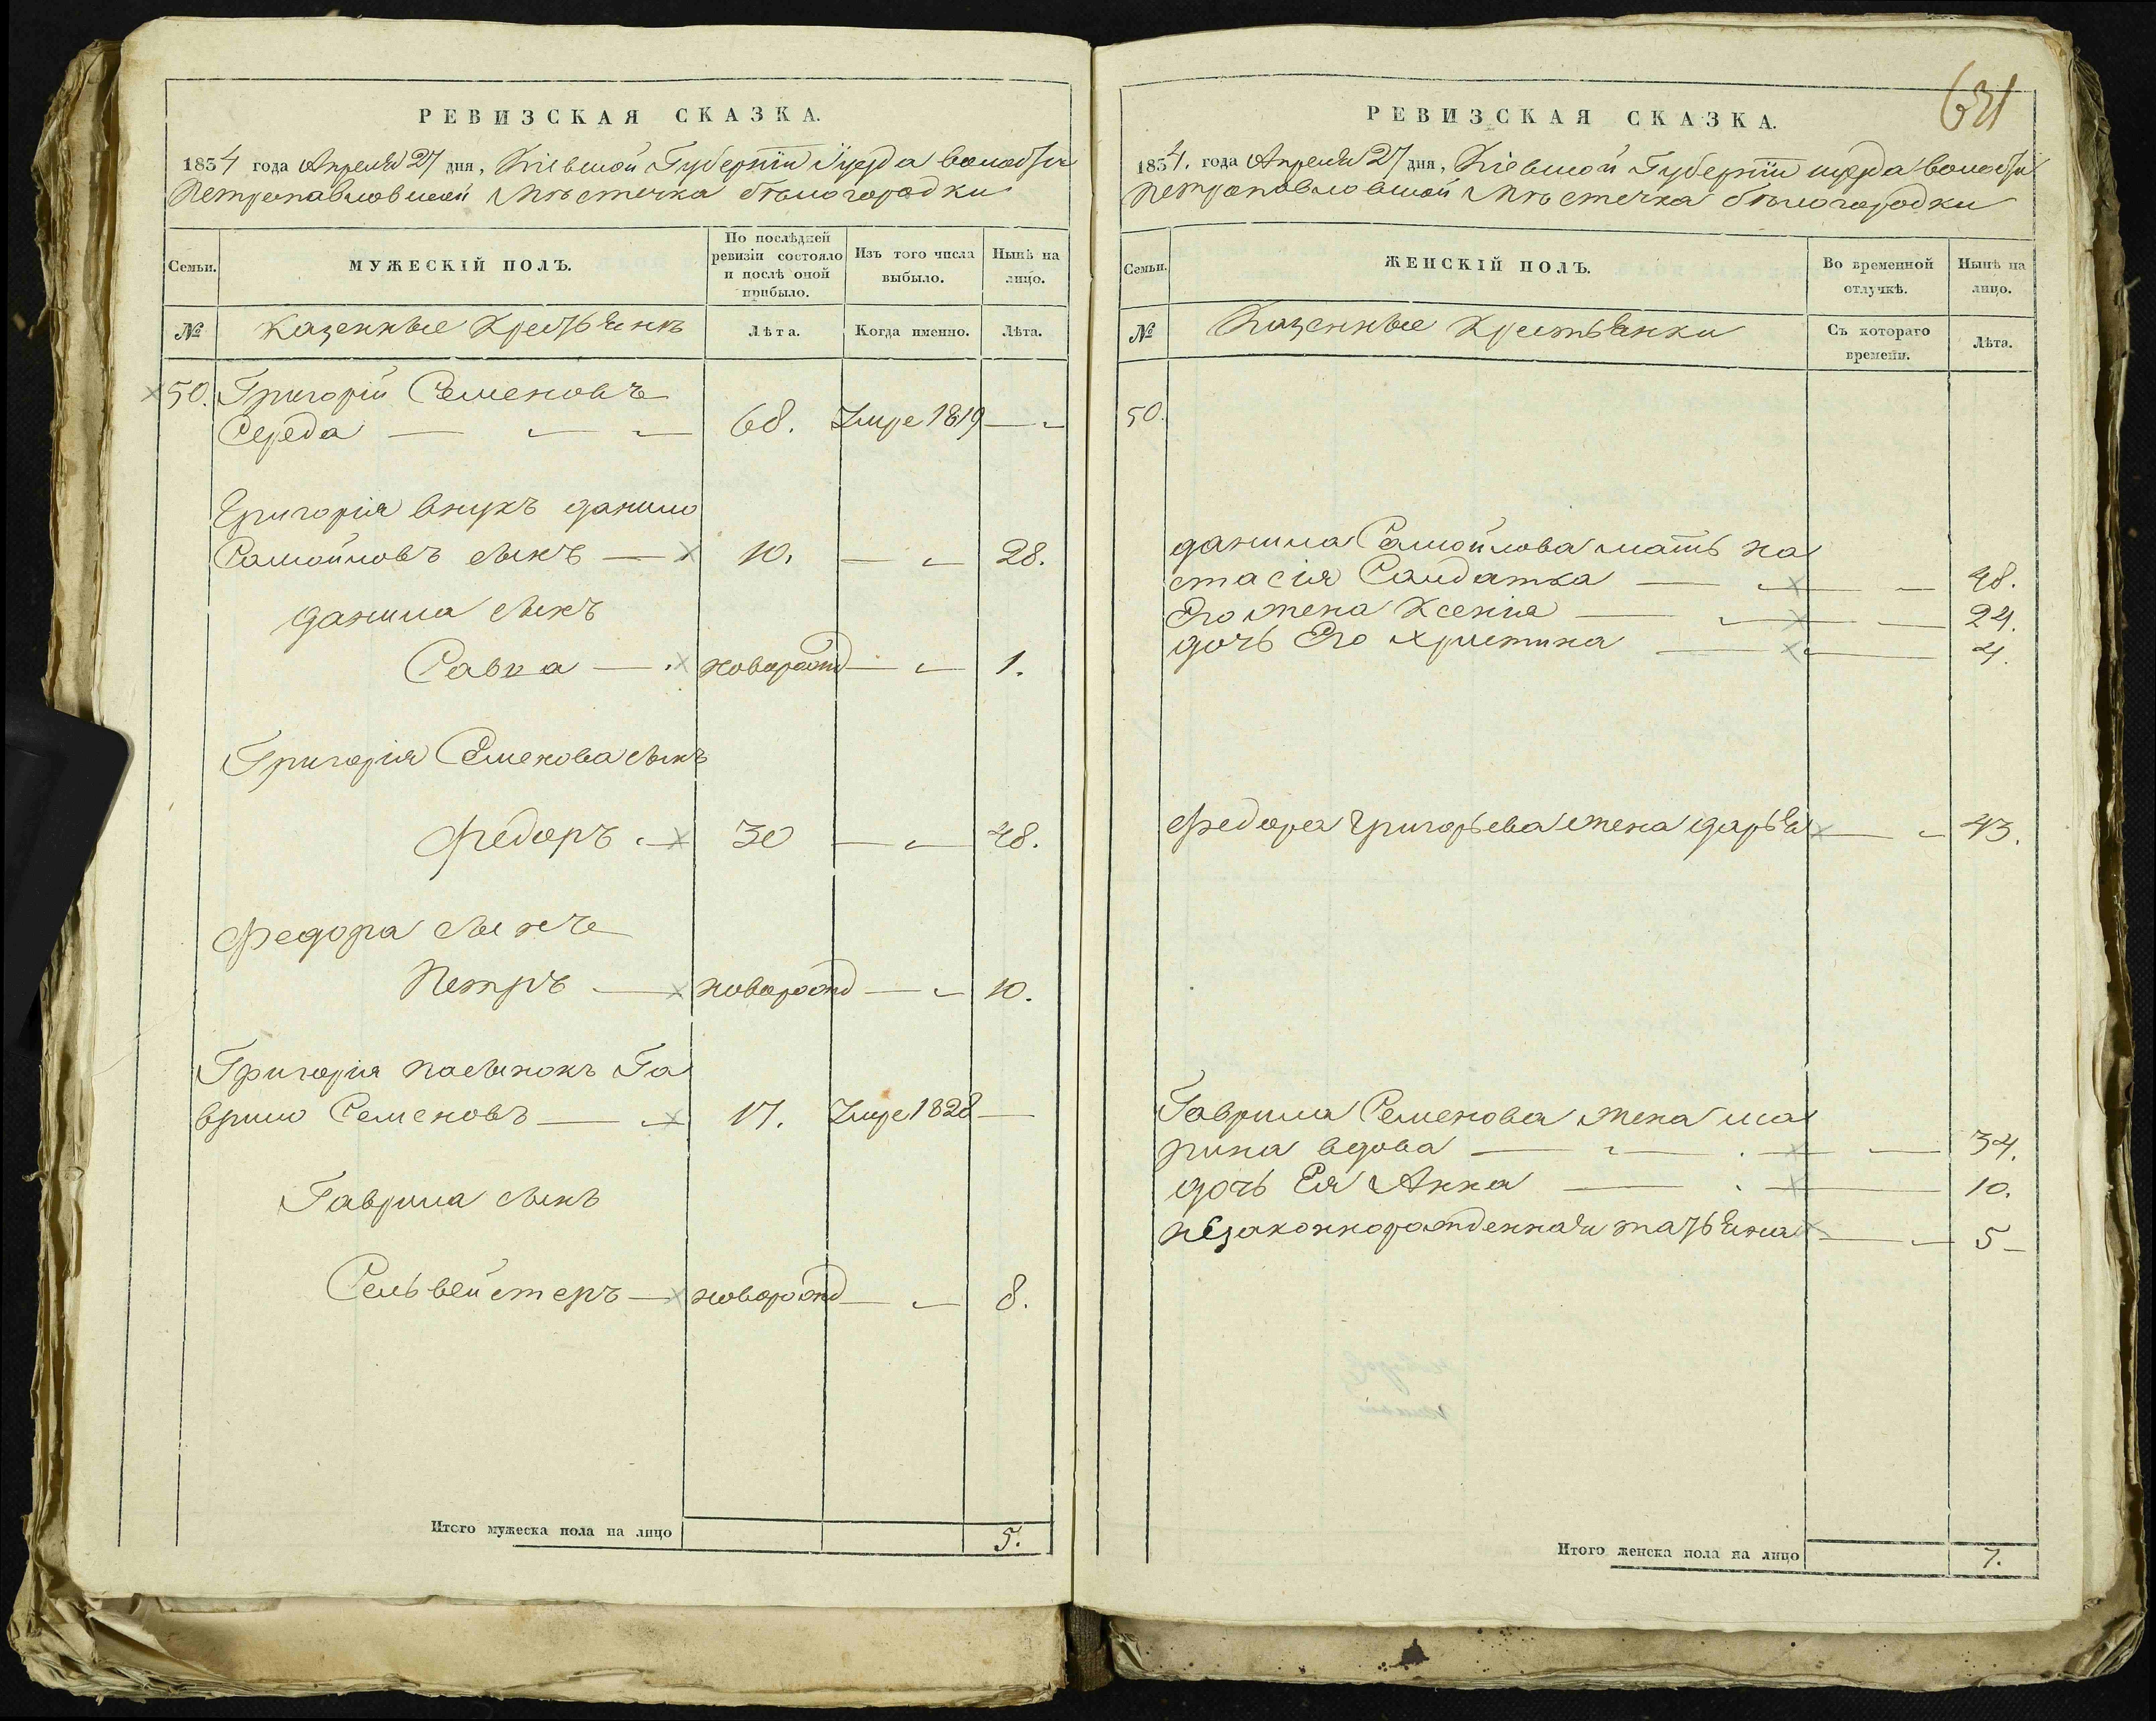 РЕВИЗСКАЯ СКАЗКА.
1834 года Апреля 27 дня, Кіевской Губерніи и уезда волости
Петропавловской Мѣстечка бѣлогородки
Семьи.
МУЖЕСКІЙ ПОЛЪ.
По послѣдней ревизіи состояло и послѣ оной прибыло.
Изъ того числа выбыло.
Нынѣ на лицо.
№
казенные Крестьянъ
Лѣта.
Когда именно.
Лѣта.
50. Григорій Семеновъ
Середа — 68. Умре 1819 —
Григорія внукъ данило
Самойловъ сынъ — 10. — 28.
данила сынъ
Савка — новорожд — 1.
Григорія Семенова сынъ
Федоръ — 30 — 48.
Федора сынъ
Петръ — новорожд — 10.
Григорія пасынокъ Га
врило Семеновъ — 17. Умре 1828 —
Гаврила сынъ
Сельвейстеръ — новорожд — 8.
Итого мужеска пола на лицо 5.
631
РЕВИЗСКАЯ СКАЗКА.
1834. года Апреля 27 дня, Кіевской Губерніи уезда волости
петропавловской Мѣстечка бѣлогородки
Семьи.
ЖЕНСКІЙ ПОЛЪ.
Во временной отлучкѣ.
Нынѣ на лицо.
№
Казенные Крестьянки
Съ котораго времени.
Лѣта.
50.
данила Самойлова мать на
стасія Салдатка — 48.
Его жена Ксенія — 24.
дочь Его христина — 4.
Федора Григорьева жена дарья — 43.
Гаврила Семенова жена ма
рина вдова — 34.
дочь Ея Анна — 10.
незаконнорожденная татьяна — 5 —
Итого женска пола на лицо 7.